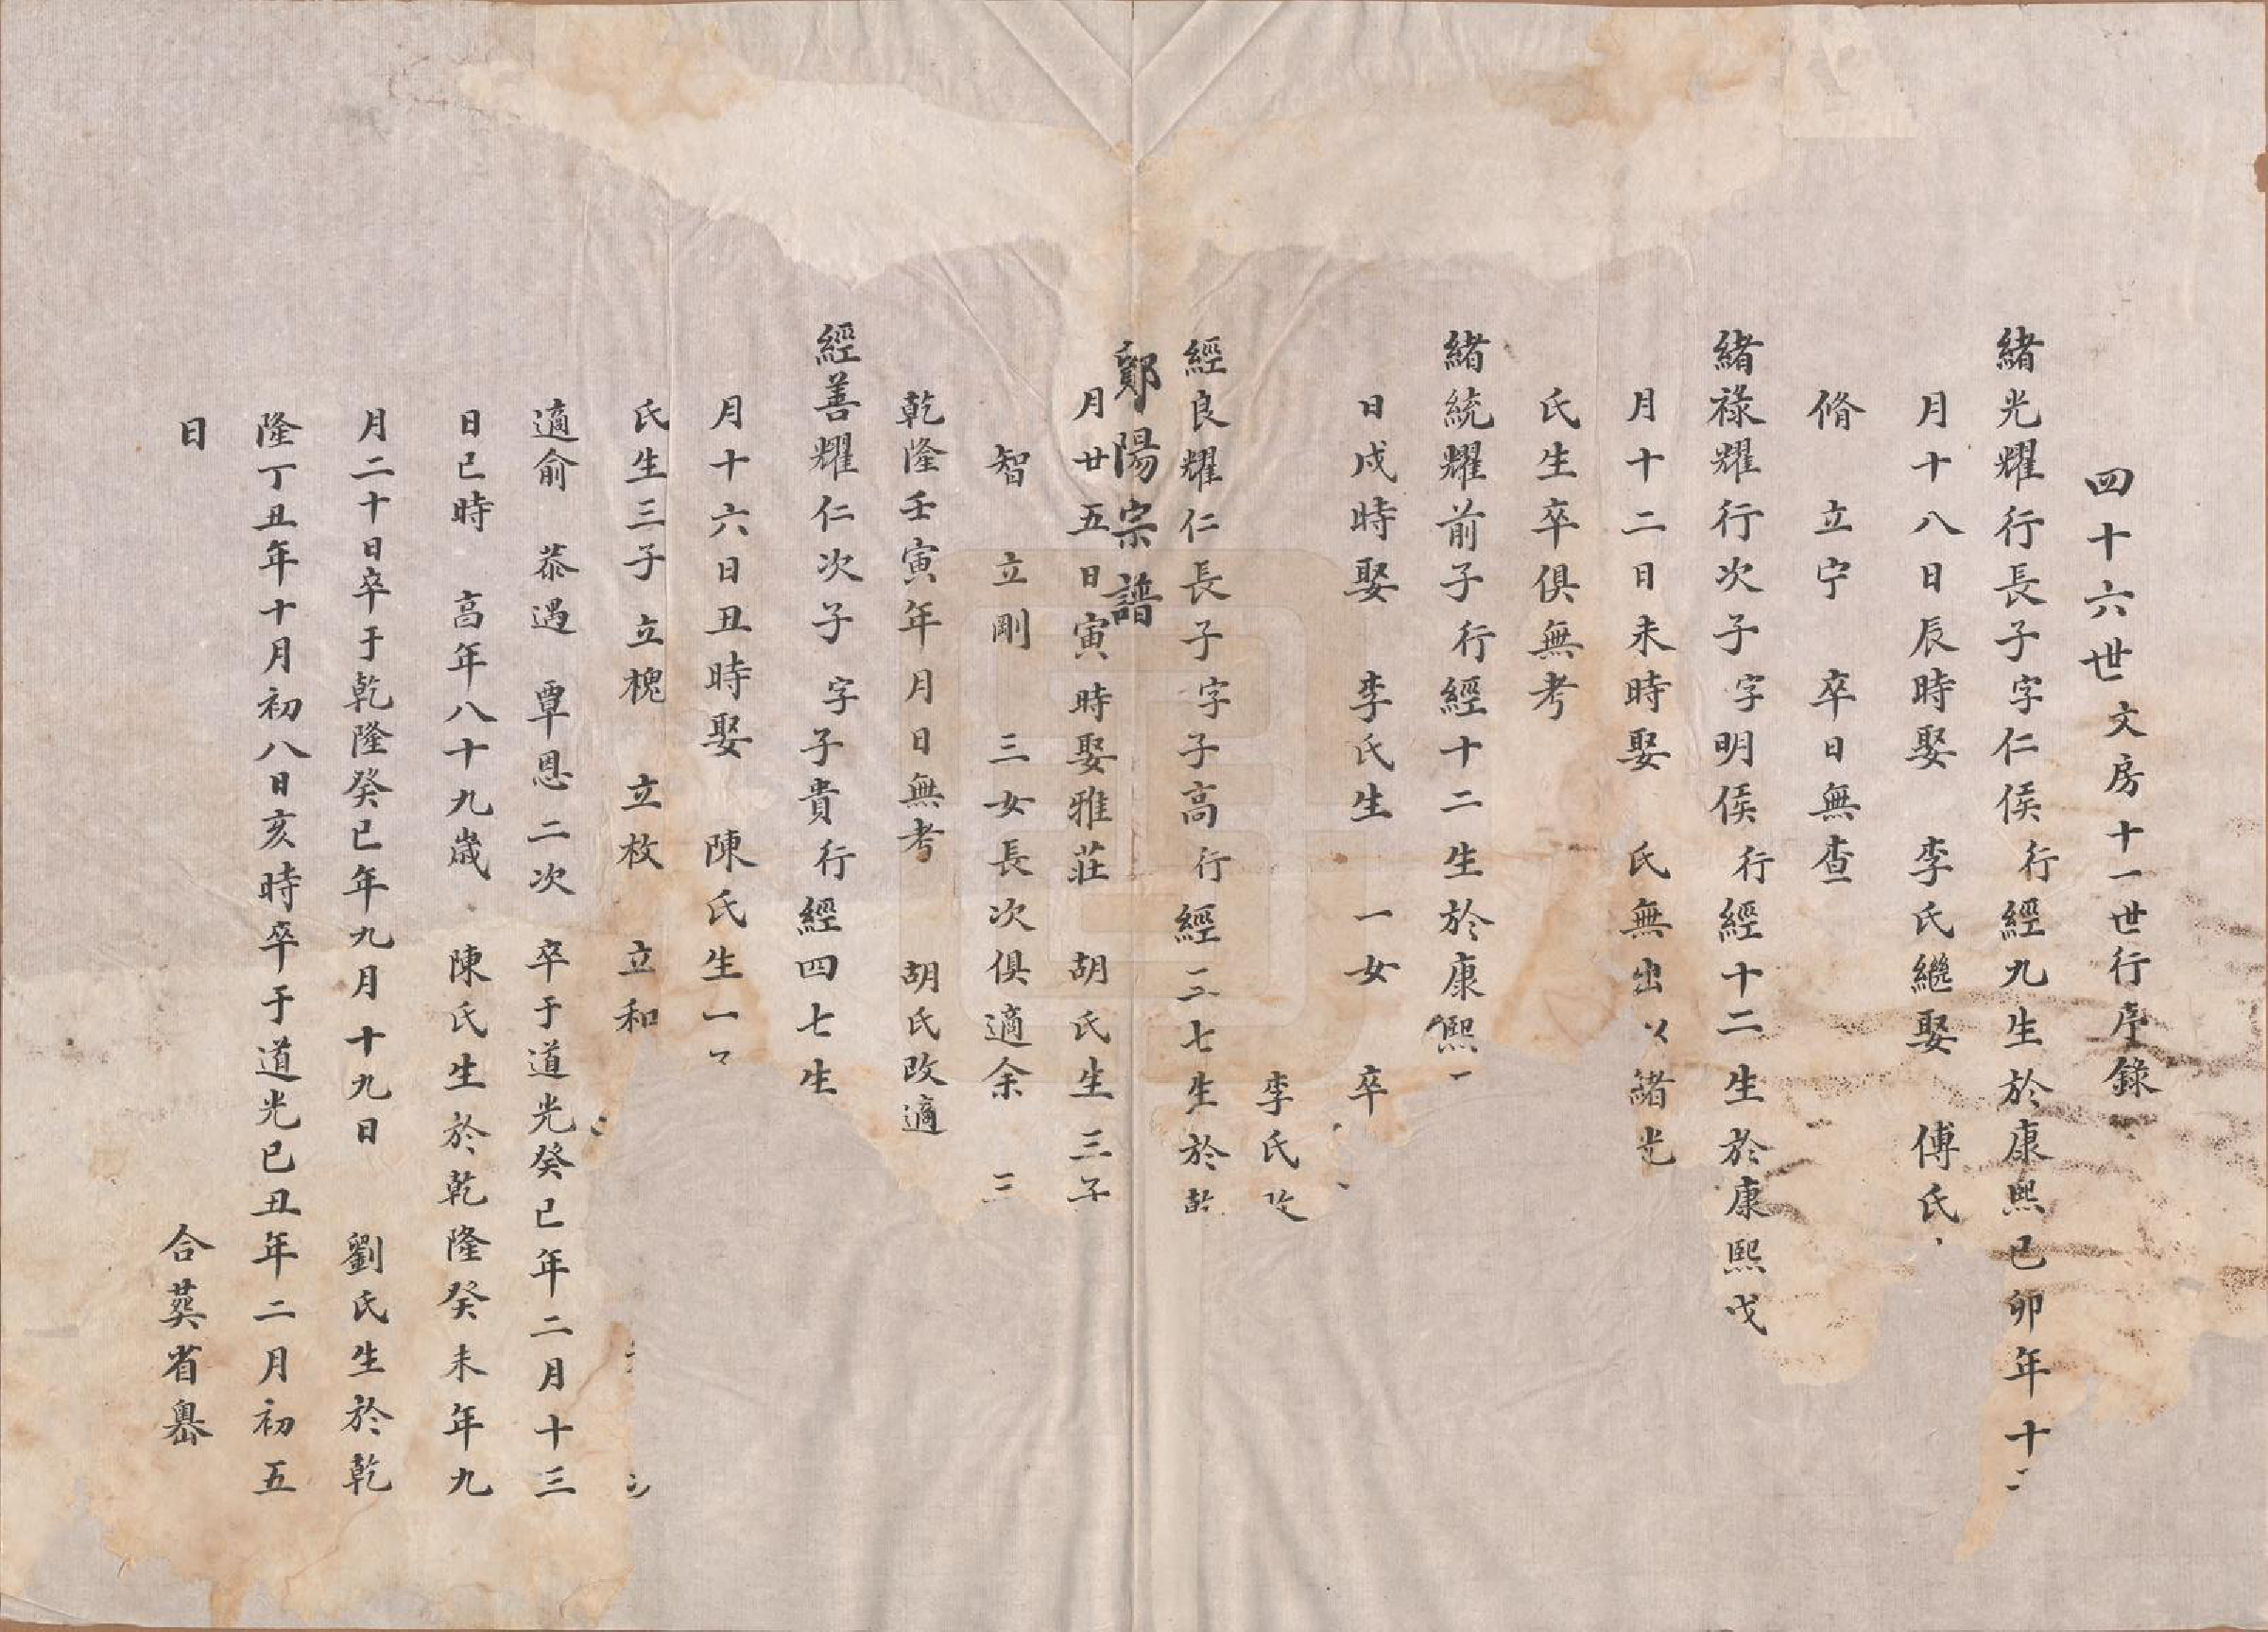 四十六世文房十一世行序錄
緒光耀行長子字仁侯行經九生於康熙己卯年十二
月十八日辰時娶 李氏繼娶 傅氏
脩 立宁 卒日無查
緒祿耀行次子字明侯行經十二生於康熙戊
月十二日未時娶 氏無出以緒光
氏生卒俱無考
緒統耀前子行經十二生於康熙
日戌時娶 李氏生 一女 卒
李氏改
經良耀仁長子字子高行經三七生於乾
鄖陽宗譜
月廿五日寅時娶雅莊 胡氏生三子
智 立剛 三女長次俱適余 三
乾隆壬寅年月日無考 胡氏改適
經善耀仁次子字子貴行經四七生
月十六日丑時娶 陳氏生一
氏生三子 立槐 立枚 立和
適俞 恭遇 覃恩二次 卒于道光癸巳年二月十三
日巳時 高年八十九歲 陳氏生於乾隆癸未年九
月二十日卒于乾隆癸巳年九月十九日 劉氏生於乾
隆丁丑年十月初八日亥時卒于道光己丑年二月初五
日 合葬省嶴